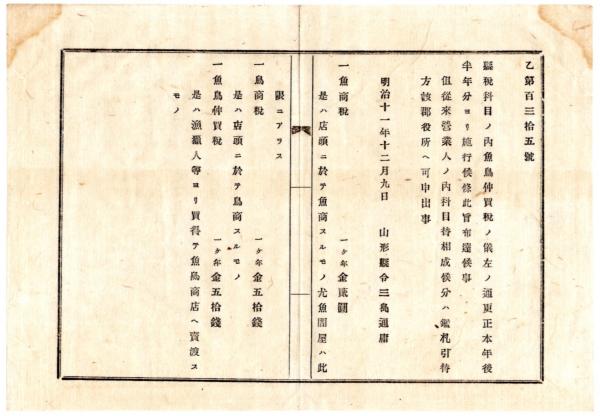 乙第百三拾五號
縣稅科目ノ內魚鳥仲買稅ノ儀左ノ通更正本年後
半年分ヨリ施行候條此旨布達候事
但從來營業人ノ內科目替相成候分ハ鑑札引替
方該郡役所ヘ可申出事
明治十一年十二月九日　山形縣令三島通庸
一魚商稅　一ヶ年金貳圓
是ハ店頭ニ於テ魚商スルモノ尤魚問屋ハ此
限ニアラス
一鳥商稅　一ヶ年金五拾錢
是ハ店頭ニ於テ鳥商スルモノ
一魚鳥仲買稅　一ヶ年金五拾錢
是ハ漁獵人等ヨリ買得テ魚鳥商店ヘ賣渡ス
モノ